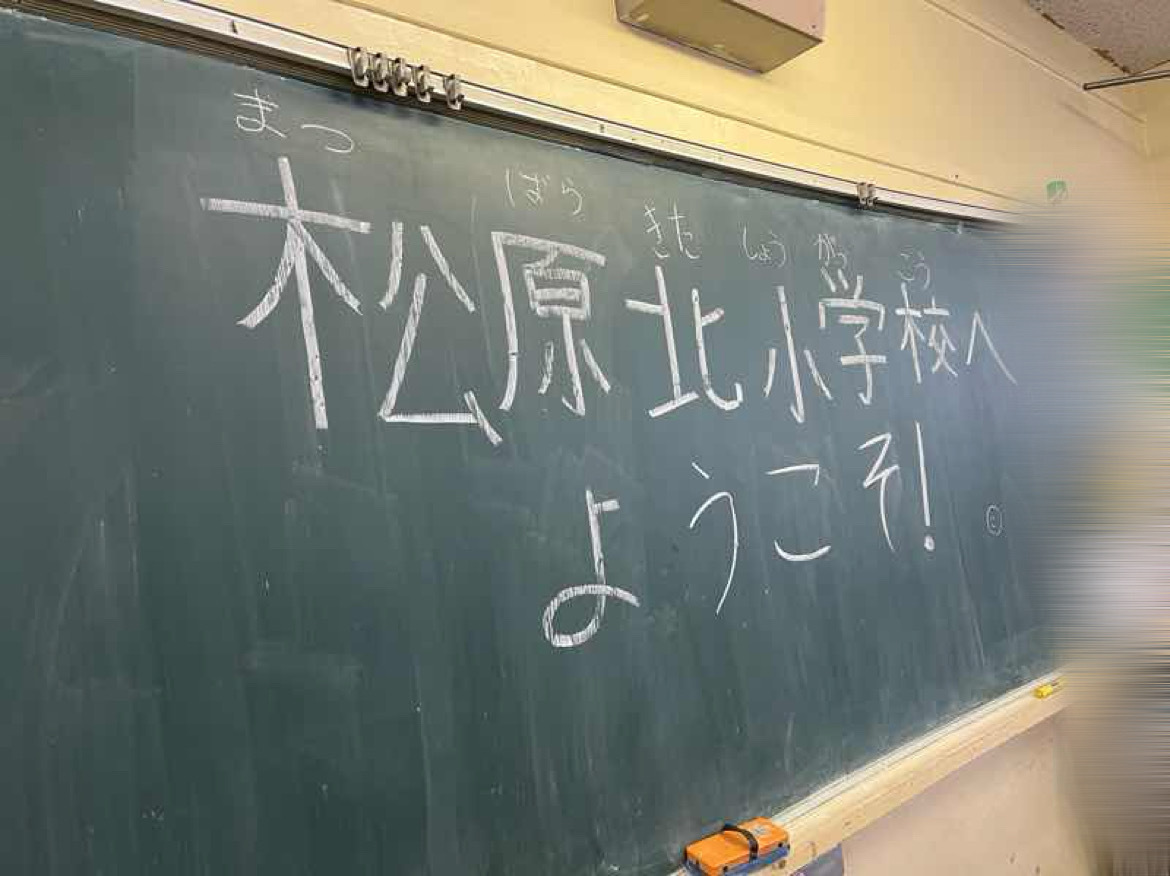 まつ ばら きた しょう がっ こう
松原北小学校へ
ようこそ!